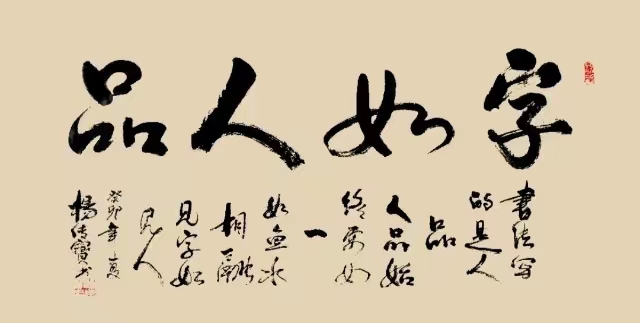 字如人品
書法写
的是人
品
人品始
终要如
一
如鱼水
相融
見字如
見人
癸卯年夏
楊传寶书